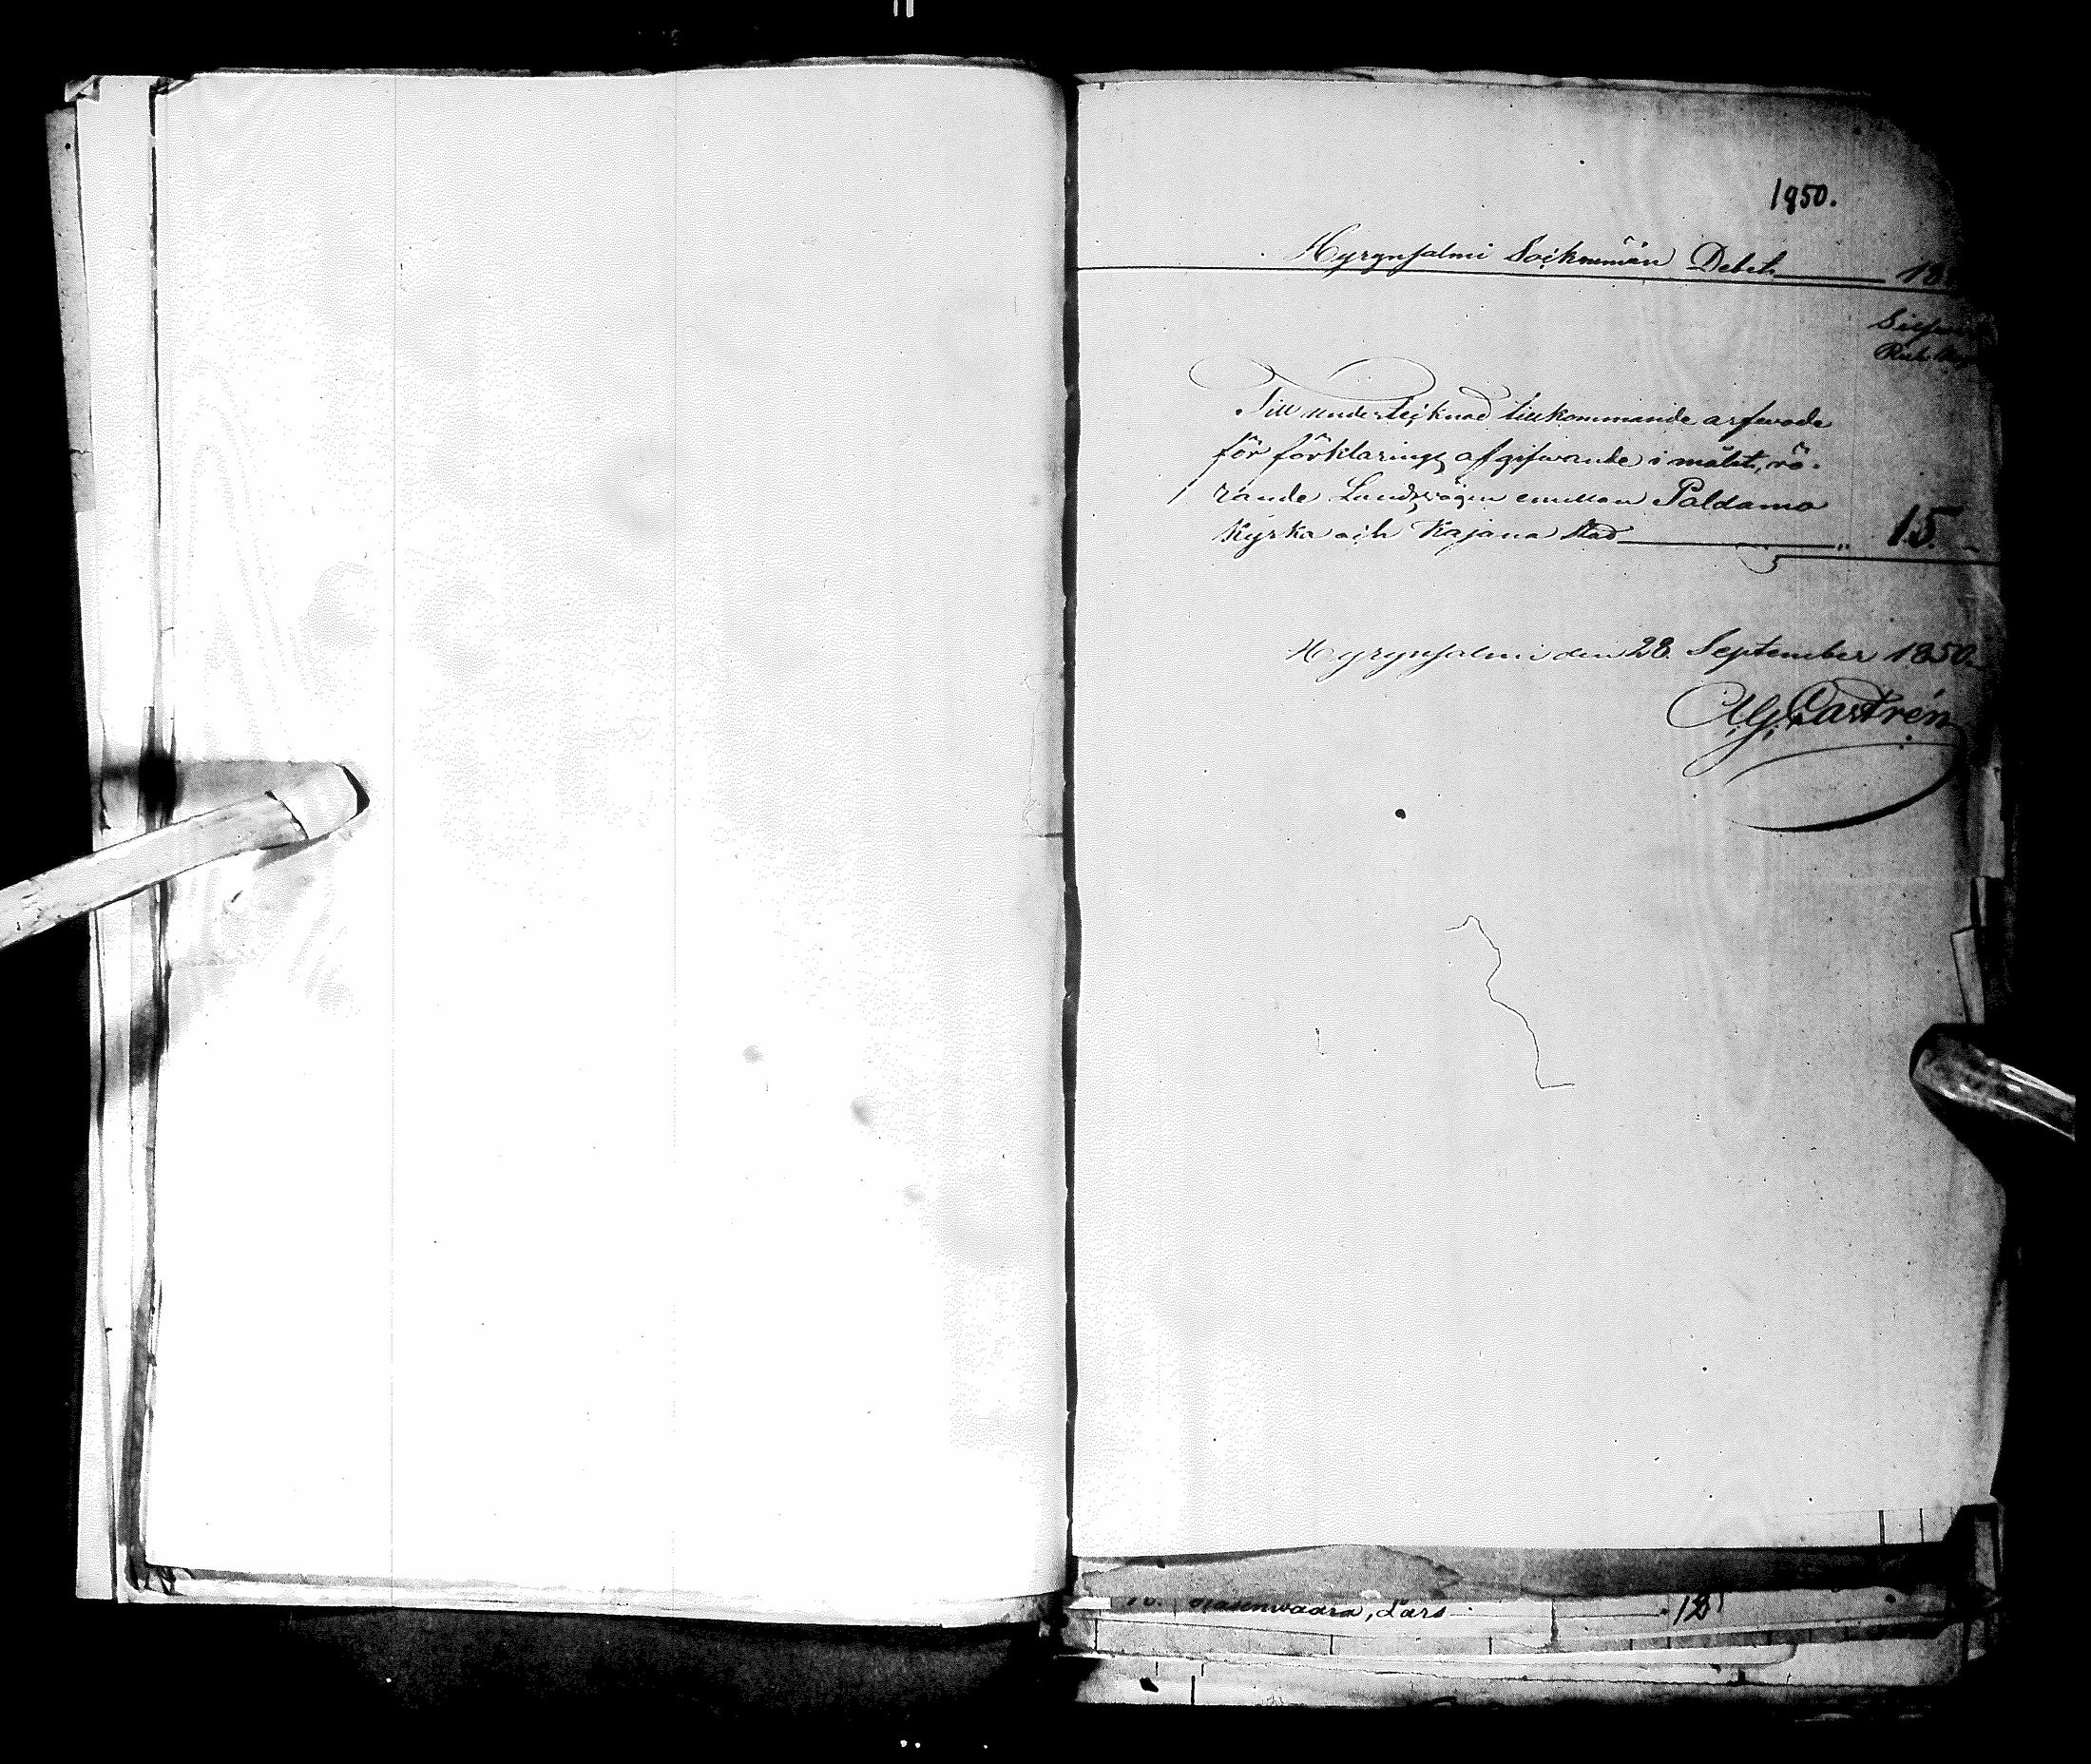 1850.
Hyrynsalmi Sockenmän Debet 18
Silfwer
Rub. Kop
Till undertecknad tillkommande arfwode
för förklarings afgifwande i målet, rö-
rande Landswägen emellan Paldamo
Kyrka och Kajana Stad " 15. -
Hyrynsalmi den 28. September 1850.
Castrén
Lars 12